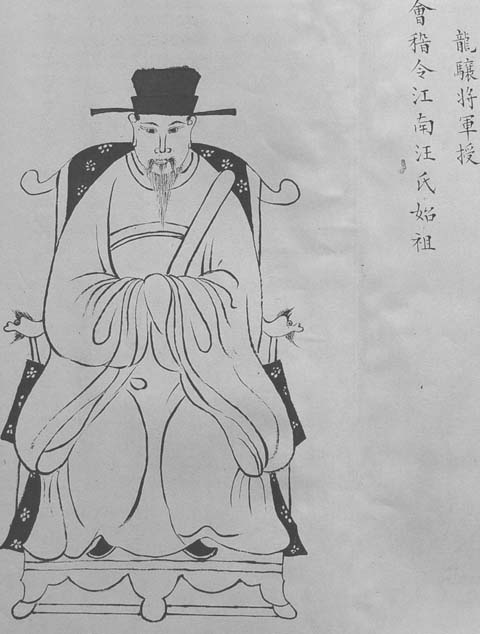 龍驤將軍授
會稽令江南汪氏始祖